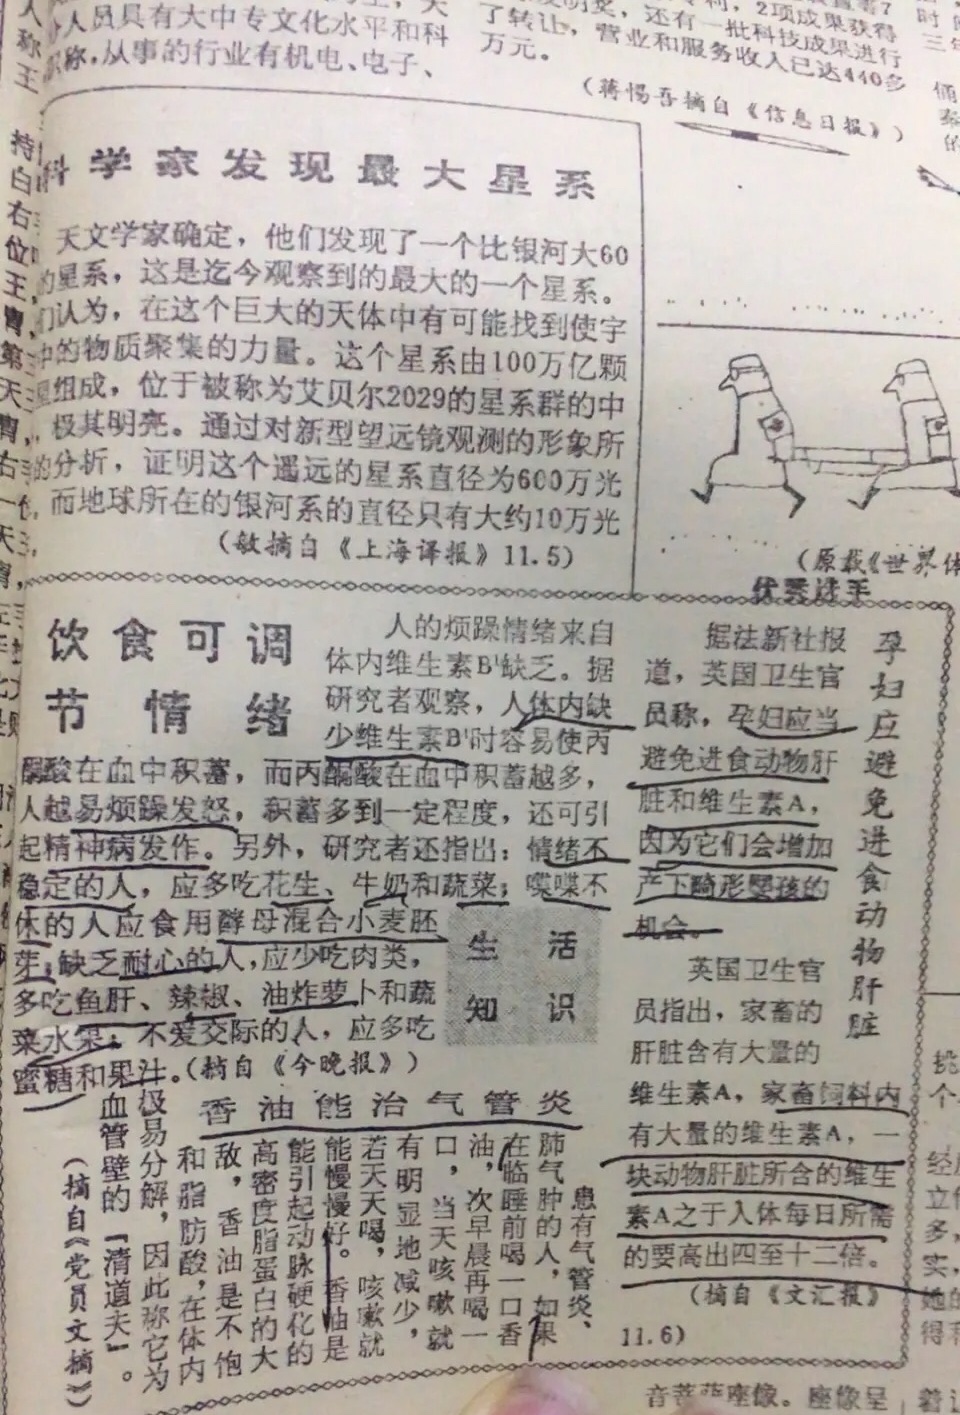 人员具有大中专文化水平和科
职称，从事的行业有机电、电子、
专利，2项成果获得
了转让，还有一批科技成果进行
营业和服务收入已达440多
万元。
（蒋惕吾摘自《信息日报》）
科学家发现最大星系
天文学家确定，他们发现了一个比银河大60
的星系，这是迄今观察到的最大的一个星系。
们认为，在这个巨大的天体中有可能找到使宇
中的物质聚集的力量。这个星系由100万亿颗
星组成，位于被称为艾贝尔2029的星系群的中
，极其明亮。通过对新型望远镜观测的形象所
的分析，证明这个遥远的星系直径为600万光
而地球所在的银河系的直径只有大约10万光
（敏摘自《上海译报》11.5）
（原载《世界体
优秀选手
饮食可调
节情绪
人的烦躁情绪来自
体内维生素B¹缺乏。据
研究者观察，人体内缺
少维生素B¹时容易使丙
酮酸在血中积蓄，而丙酮酸在血中积蓄越多，
人越易烦躁发怒，积蓄多到一定程度，还可引
起精神病发作。另外，研究者还指出：情绪不
稳定的人，应多吃花生、牛奶和蔬菜；喋喋不
休的人应食用酵母混合小麦胚
芽；缺乏耐心的人，应少吃肉类，
多吃鱼肝、辣椒、油炸萝卜和蔬
菜水果；不爱交际的人，应多吃
蜜糖和果汁。（摘自《今晚报》）
生活
知识
孕妇应避免进食动物肝脏
据法新社报
道，英国卫生官
员称，孕妇应当
避免进食动物肝
脏和维生素A，
因为它们会增加
产下畸形婴孩的
机会。
英国卫生官
员指出，家畜的
肝脏含有大量的
维生素A，家畜饲料内
有大量的维生素A，一
块动物肝脏所含的维生
素A之于人体每日所需
的要高出四至十二倍。
（摘自《文汇报》
11.6）
香油能治气管炎
患有气管炎、
肺气肿的人，如果
在临睡前喝一口香
油，次早晨再喝一
口，当天咳嗽就
有明显地减少，
若天天喝，咳嗽就
能慢慢好。香油是
能引起动脉硬化的
高密度脂蛋白的大
敌，香油是不饱
和脂肪酸，在体内
极易分解，因此称它为
血管壁的“清道夫”。
（摘自《党员文摘》）
音菩萨座像。座像呈